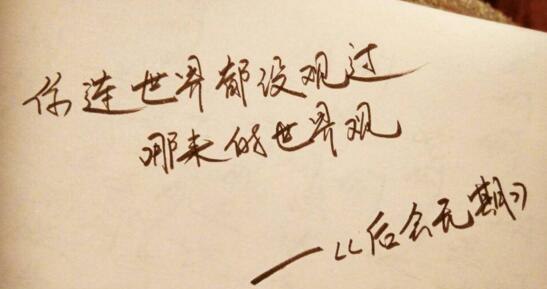 你连世界都没观过
哪来的世界观
—《后会无期》